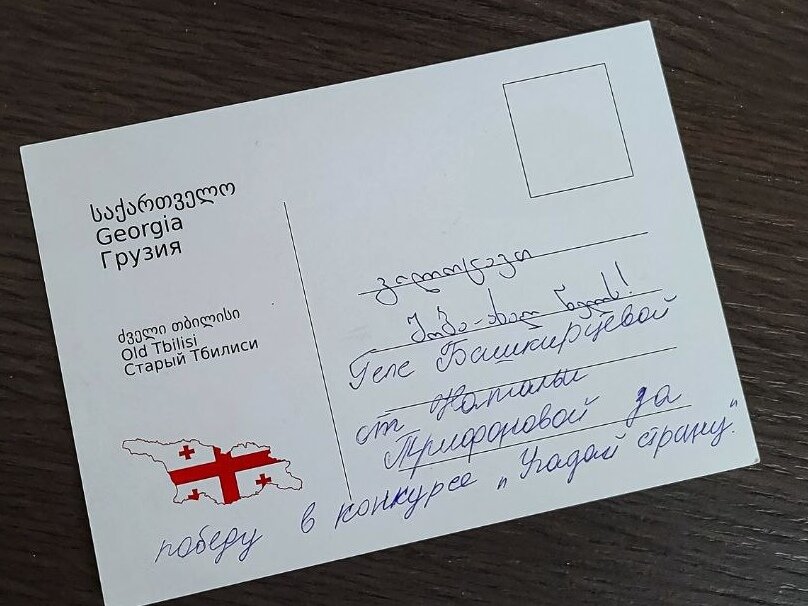 საქართველო
Georgia
Грузия
ძველი თბილისი
Old Tbilisi
Старый Тбилиси
გილოცავთ
შობა-ახალ წელს!
Геле Башкирцевой
от Натальи
Трифоновой за
победу в конкурсе „Угадай страну."